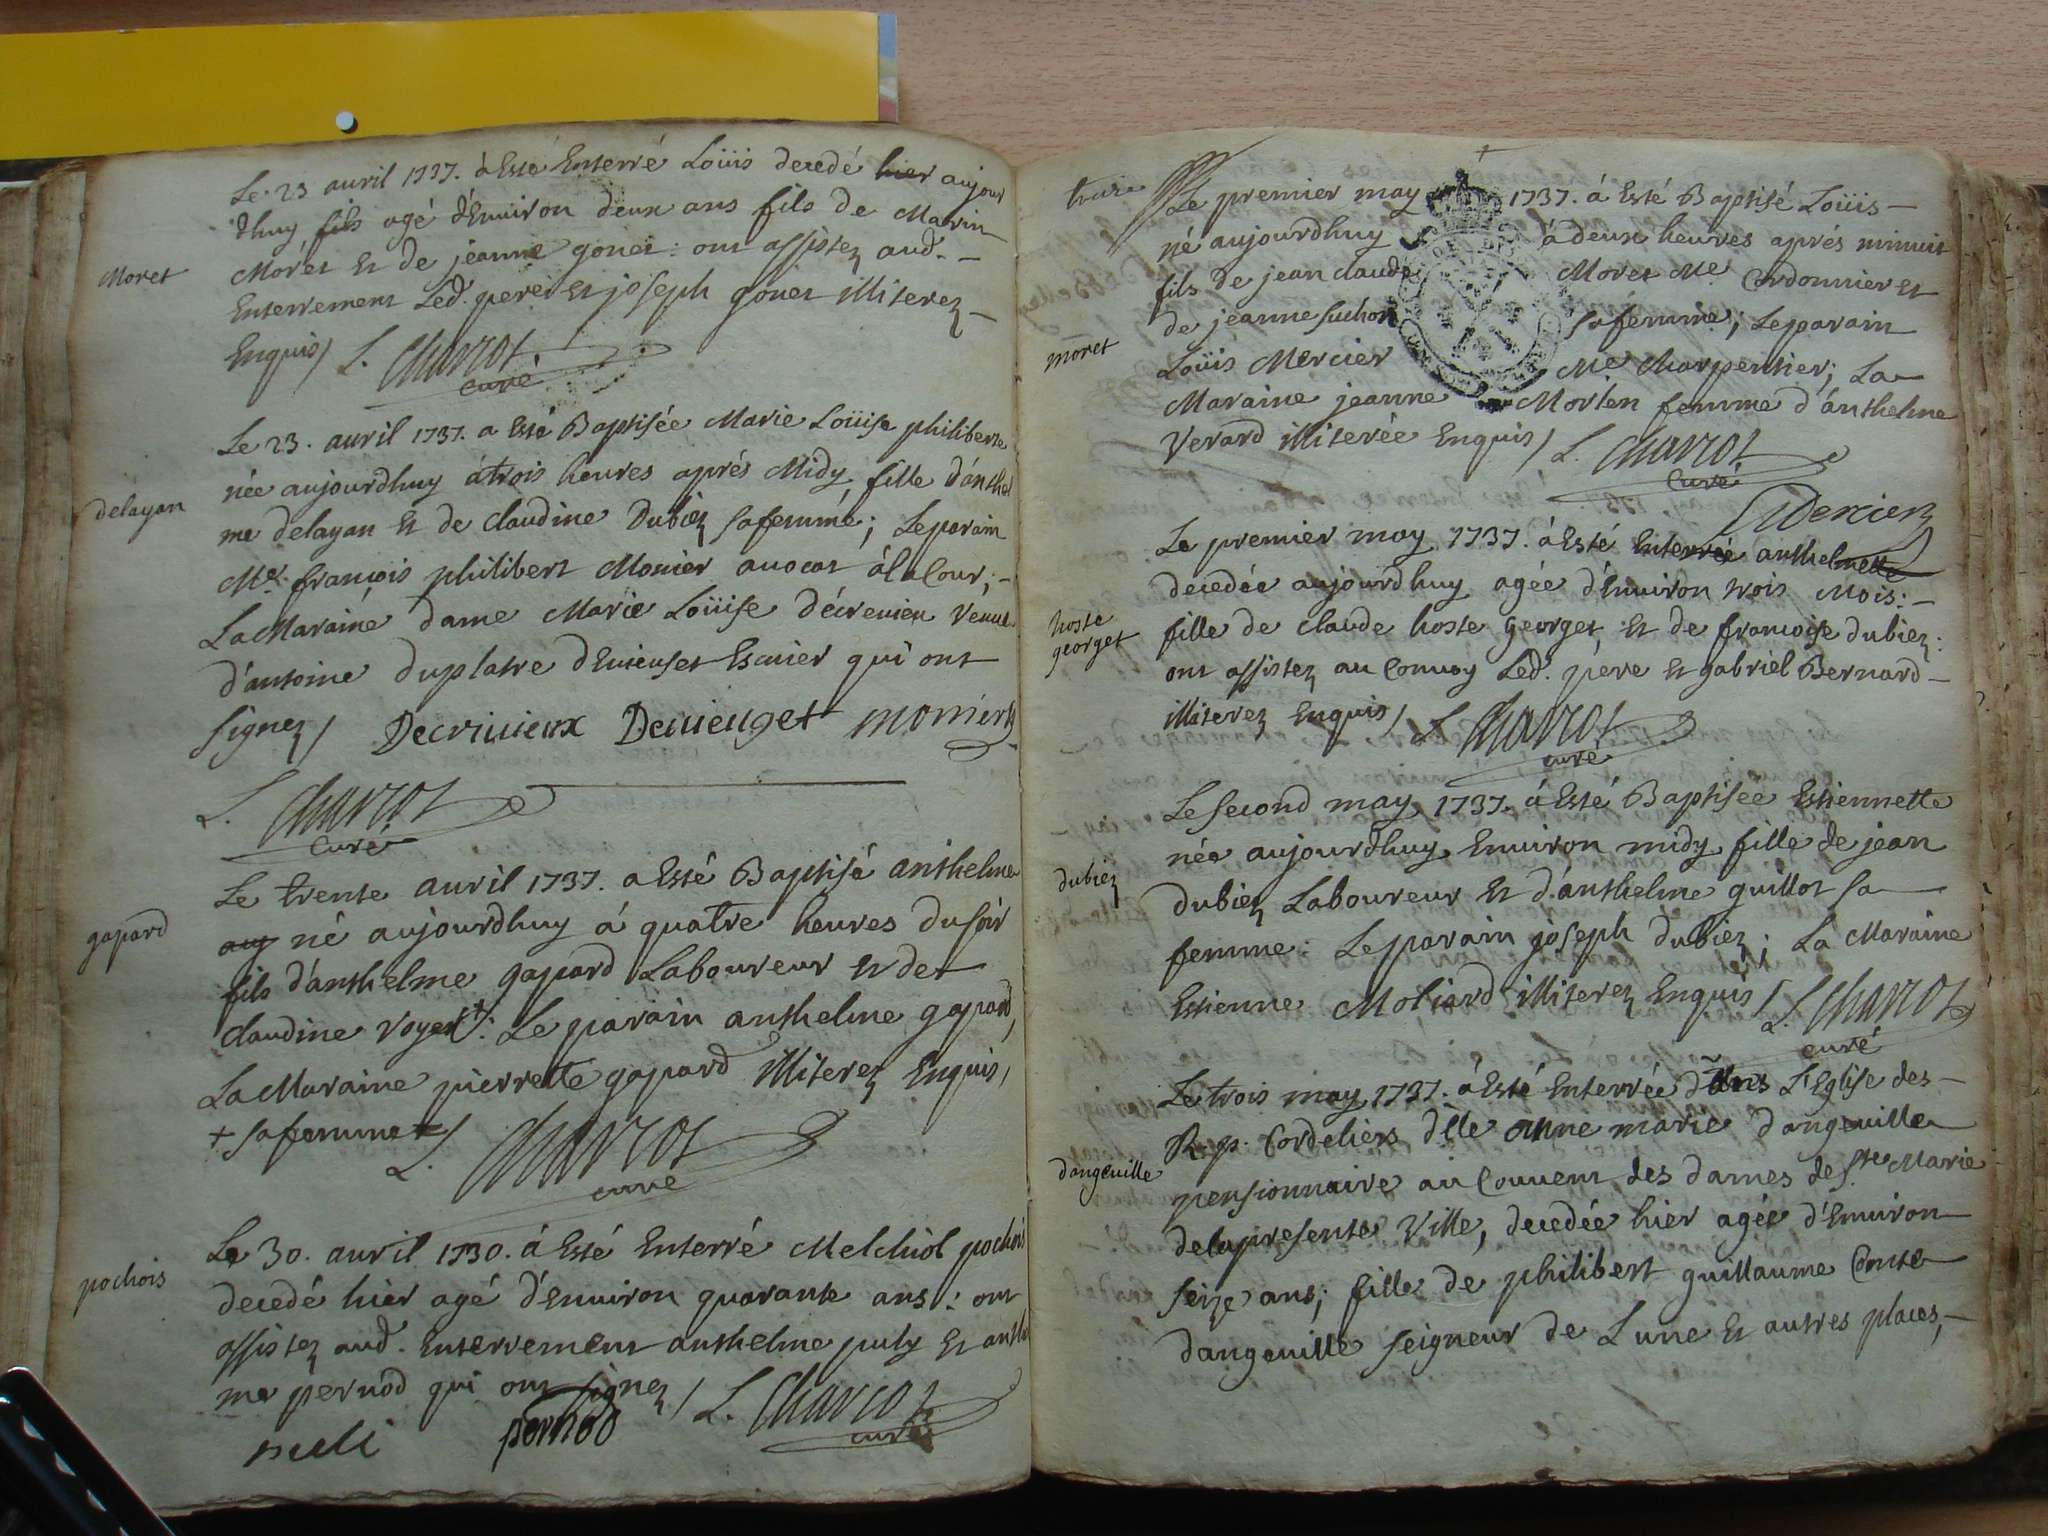 Le 23 auril 1737. à Esté Enterré Loüis decedé hier aujour
dhuy fils agé d'Enuiron deux ans fils de Marin
Moret
Moret et de jeanne gonet : ont assistez aud. –
Enterrement Led. pere et joseph gonet illiterez –
Enquis / L. Charrot
curé
Le 23. auril 1737. a Esté Baptisée Marie Loüise philiberte
née aujourdhuy à trois heures aprés Midy, fille d'anthel
delayan
me delayan et de claudine Dubiez sa femme ; Le parain
Mr. françois philibert Monier auocat à la Cour ; –
La Maraine dame Marie Loüise décreuieu Veuue
d'antoine duplatre d'Euieuset Escuier qui ont
signez / Decriuieux Deuieuget monier
L. Charrot
Curé
Le trente auril 1737. a Esté Baptisé anthelme
auj né aujourdhuy à quatre heures du soir
gapard
fils d'anthelme gapard Laboureur et de
claudine Voyer + : Le parain anthelme gapard,
La Maraine pierrette gapard illiterez Enquis,
+ sa femme + / L. Charrot
curé
Le 30. auril 1730. à Esté Enterré Melchiol pochois
pochois
decedé hier agé d'Enuiron quarante ans : ont
assistez aud. Enterrement anthelme puly et anthel
me pernod qui ont signez / L. Charrot
puli pernod curé
treize
Le premier may 1737. à Esté Baptisé Loüis –
né aujourdhuy à deux heures aprés minuit
fils de jean claude Moret Me Cordonnier et
de jeanne suchon sa femme ; Le parain
moret
Loüis Mercier Me Charpentier ; La
Maraine jeanne Morten femme d'anthelme
Verard illiterée Enquis / L. Charrot
Curé
Mercier
Le premier may 1737. à Esté Enterrée anthelmette
decedée aujourdhuy agée d'Enuiron trois Mois : –
hoste
georget
fille de claude hoste georget, et de françoise dubiez :
ont assistez au Conuoy Led. pere et gabriel Bernard –
illiterez Enquis / L. Charrot
curé
Le second may 1737. à Esté Baptisée Estiennette
née aujourdhuy Enuiron midy fille de jean
dubiez
dubiez Laboureur et d'anthelme guillot sa
femme : Le parain joseph dubiez ; La Maraine
Estienne Moliard illiterez Enquis / L. Charrot
curé
Le trois may 1737. à Esté Enterrée dans L'Eglise des –
R. p. Cordeliers dlle anne marie dangeuille
dangeuille
pensionnaire au Couuent des dames de Ste Marie
de la presente Ville, decedée hier agée d'Enuiron
seize ans ; fille de philibert guillaume Conte
dangeuille seigneur de Lune et autres places, –